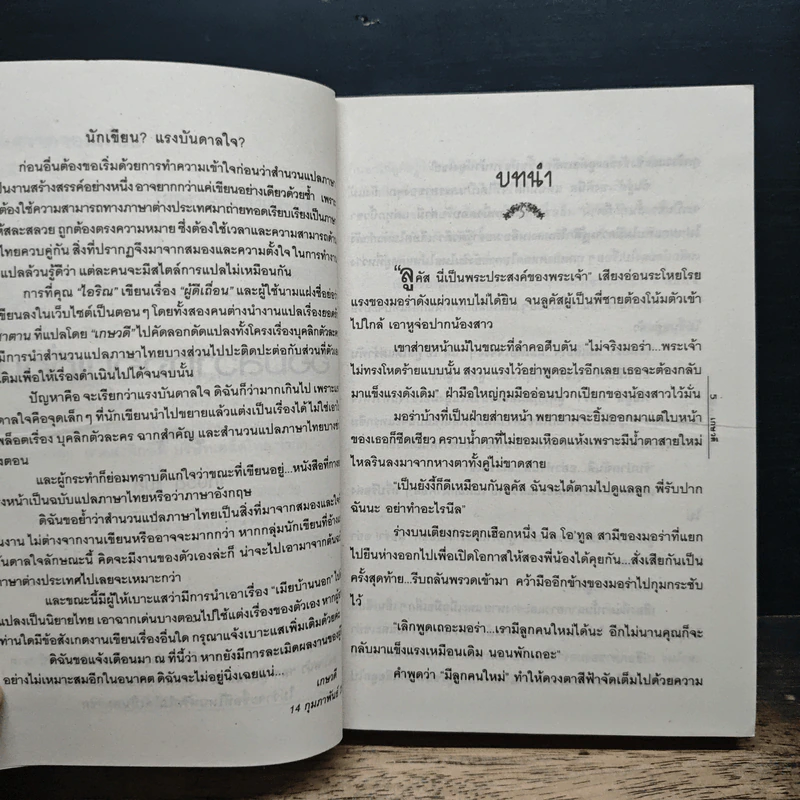 นักเขียน? แรงบันดาลใจ?
ก่อนอื่นต้องขอเริ่มด้วยการทำความเข้าใจก่อนว่าสำนวนแปลภาษา
เป็นงานสร้างสรรค์อย่างหนึ่ง อาจยากกว่าแค่เขียนอย่างเดียวด้วยซ้ำ เพราะ
ต้องใช้ความสามารถทางภาษาต่างประเทศมาถ่ายทอดเรียบเรียงเป็นภาษา
ให้สละสลวย ถูกต้องตรงความหมาย ซึ่งต้องใช้เวลาและความสามารถด้าน
ไทยควบคู่กัน สิ่งที่ปรากฏจึงมาจากสมองและความตั้งใจ ในการทำงาน
แปลล้วนรู้ดีว่า แต่ละคนจะมีสไตล์การแปลไม่เหมือนกัน
การที่คุณ "ไอริณ" เขียนเรื่อง "ผู้ดีเถื่อน" และผู้ใช้นามแฝงชื่อย่อว่า
ขียนลงในเว็บไซต์เป็นตอน ๆ โดยทั้งสองคนต่างนำงานแปลเรื่องยอด
ซาตาน ที่แปลโดย "เกษวดี" ไปคัดลอกดัดแปลงทั้งโครงเรื่องบุคลิกตัวละคร
มีการนำสำนวนแปลภาษาไทยบางส่วนไปปะติดปะต่อกับส่วนที่ตัว
เติมเพื่อให้เรื่องดำเนินไปได้จนจบนั้น
ปัญหาคือ จะเรียกว่าแรงบันดาลใจ ดิฉันก็ว่ามากเกินไป เพราะ
ดาลใจคือจุดเล็ก ๆ ที่นักเขียนนำไปขยายแล้วแต่งเป็นเรื่องได้ ไม่ใช่เอา
พล็อตเรื่อง บุคลิกตัวละคร ฉากสำคัญ และสำนวนแปลภาษาไทยบาง
งตอน
และผู้กระทำก็ย่อมทราบดีแก่ใจว่าขณะที่เขียนอยู่...หนังสือที่กาง
งหน้าเป็นฉบับแปลภาษาไทยหรือว่าภาษาอังกฤษ
ดิฉันขอย้ำว่าสำนวนแปลภาษาไทยเป็นสิ่งที่มาจากสมองและใจ
งาน ไม่ต่างจากงานเขียนหรืออาจจะมากกว่า หากกลุ่มนักเขียนที่อ้าง
ันดาลใจลักษณะนี้ คิดจะมีงานของตัวเองล่ะก็ น่าจะไปเอามาจากต้นฉบับ
ภาษาต่างประเทศไปเลยจะเหมาะกว่า
และขณะนี้มีผู้ให้เบาะแสว่ามีการนำเอาเรื่อง "เมียบ้านนอก" ไป
แปลงเป็นนิยายไทย เอาฉากเด่นบางตอนไปใช้แต่งเรื่องของตัวเอง หาก
ท่านใดมีข้อสังเกตงานเขียนเรื่องอื่นใด กรุณาแจ้งเบาะแสเพิ่มเติมด้วยค่ะ
ดิฉันขอแจ้งเตือนมา ณ ที่นี้ว่า หากยังมีการละเมิดผลงานของผู้
อย่างไม่เหมาะสมอีกในอนาคต ดิฉันจะไม่อยู่นิ่งเฉยแน่...
เกษวดี
14 กุมภาพันธ์
บทนำ
"ลูคัส นี่เป็นพระประสงค์ของพระเจ้า" เสียงอ่อนระโหยโรย
แรงของมอร่าดังแผ่วแทบไม่ได้ยิน จนลูคัสผู้เป็นพี่ชายต้องโน้มตัวเข้า
ไปใกล้ เอาหูจ่อปากน้องสาว
เขาส่ายหน้าแม้ในขณะที่ลำคอตีบตัน "ไม่จริงมอร่า...พระเจ้า
ไม่ทรงโหดร้ายแบบนั้น สงวนแรงไว้อย่าพูดอะไรอีกเลย เธอจะต้องกลับ
มาแข็งแรงดังเดิม" ฝ่ามือใหญ่กุมมืออ่อนปวกเปียกของน้องสาวไว้มั่น
มอร่าบ้างที่เป็นฝ่ายส่ายหน้า พยายามจะยิ้มออกมาแต่ใบหน้า
ของเธอก็ซีดเซียว คราบน้ำตาที่ไม่ยอมเหือดแห้งเพราะมีน้ำตาสายใหม่
ไหลรินลงมาจากหางตาทั้งคู่ไม่ขาดสาย
"เป็นยังงี้ก็ดีเหมือนกันลูคัส ฉันจะได้ตามไปดูแลลูก พี่รับปาก
ฉันนะ อย่าทำอะไรนีล"
ร่างบนเตียงกระตุกเฮือกหนึ่ง นีล โอ'ทูล สามีของมอร่าที่แยก
ไปยืนห่างออกไปเพื่อเปิดโอกาสให้สองพี่น้องได้คุยกัน...สั่งเสียกันเป็น
ครั้งสุดท้าย...รีบถลันพรวดเข้ามา คว้ามืออีกข้างของมอร่าไปกุมกระชับ
ไว้
"เลิกพูดเถอะมอร่า...เรามีลูกคนใหม่ได้นะ อีกไม่นานคุณก็จะ
กลับมาแข็งแรงเหมือนเดิม นอนพักเถอะ"
คำพูดว่า "มีลูกคนใหม่" ทำให้ดวงตาสีฟ้าจัดเต็มไปด้วยความ
5
เกษวดี